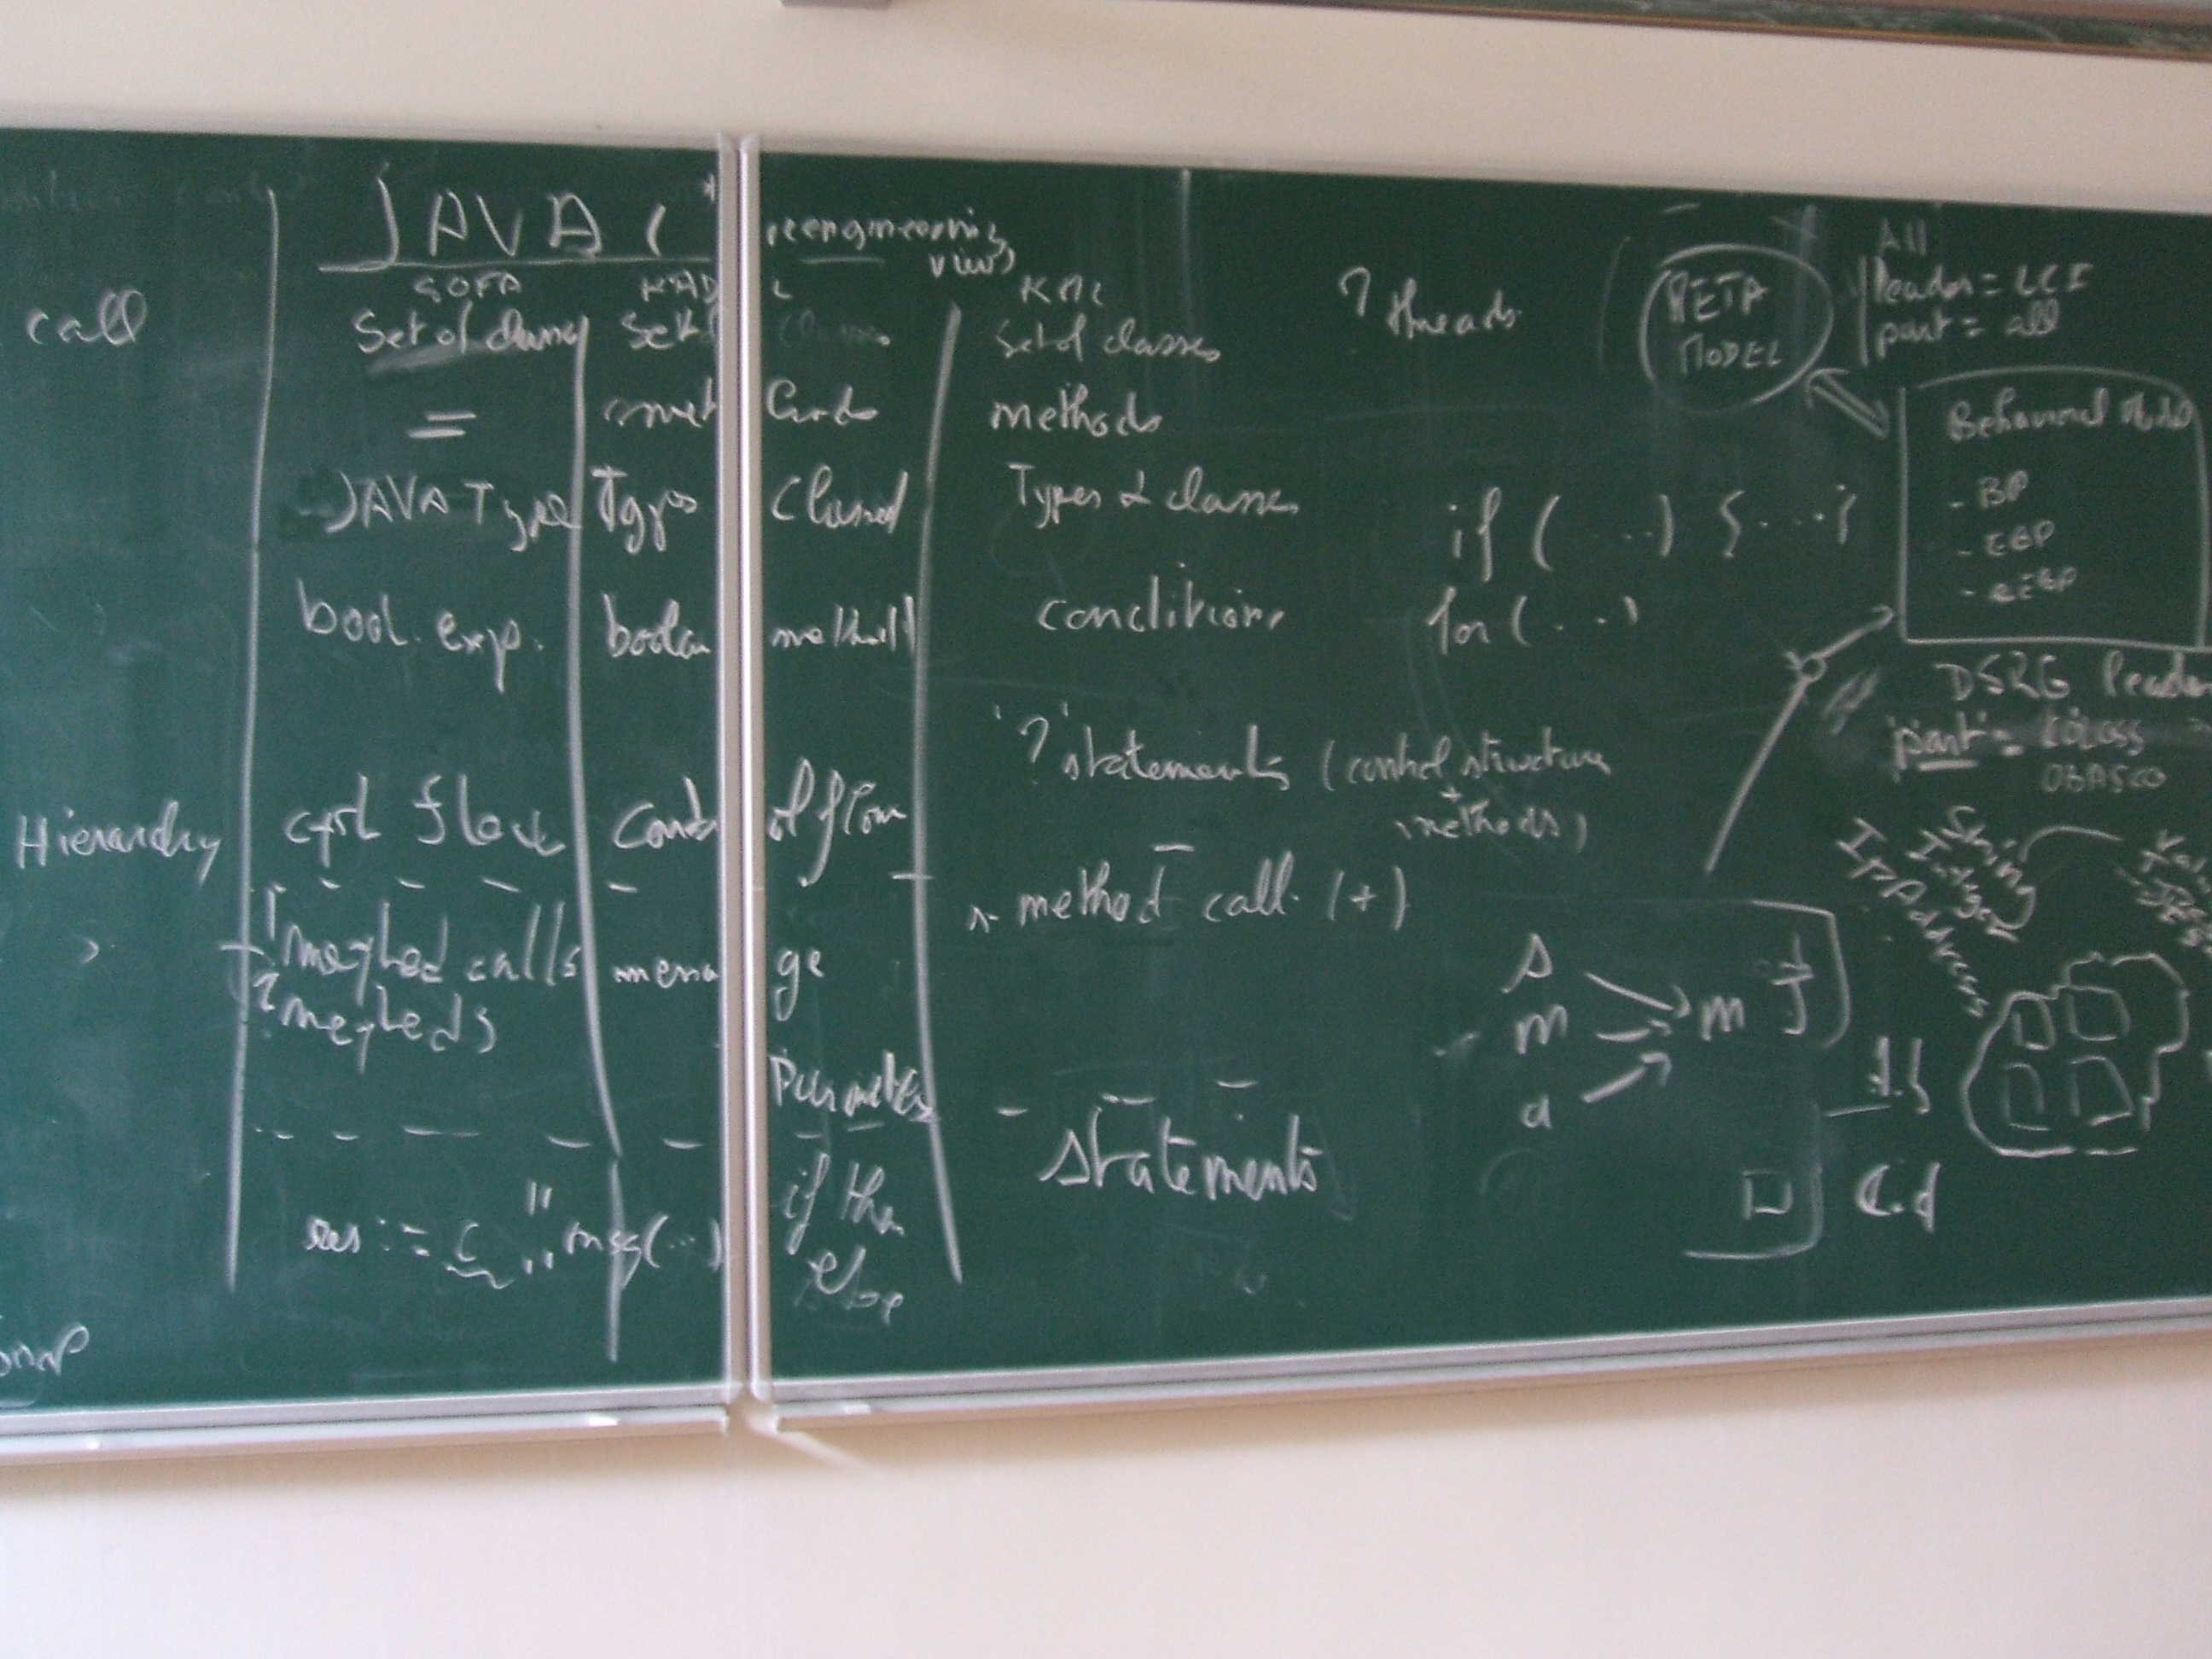 JAVA ( reengineering
view)
SOFA KADL KML
call Set of classes Set of classes Set of classes
? threads
META
MODEL
All
leader = LCI
part = all
= methods
Behavioural Model
- BP
- EBP
JAVA Type Types Classes Types & classes
if ( ...) { ....}
bool. exp. boolean method conditions
for ( ...)
DSRG leader
part =
OBASCO
? statements ( control structure
+
methods )
Hierarchy ctrl flow Control flow
method call (+)
String
Integer
IPAddress
1 method calls message
2 methods
s
m m
a
Parameters
statements
res := c msg(...) if then
else
C.d